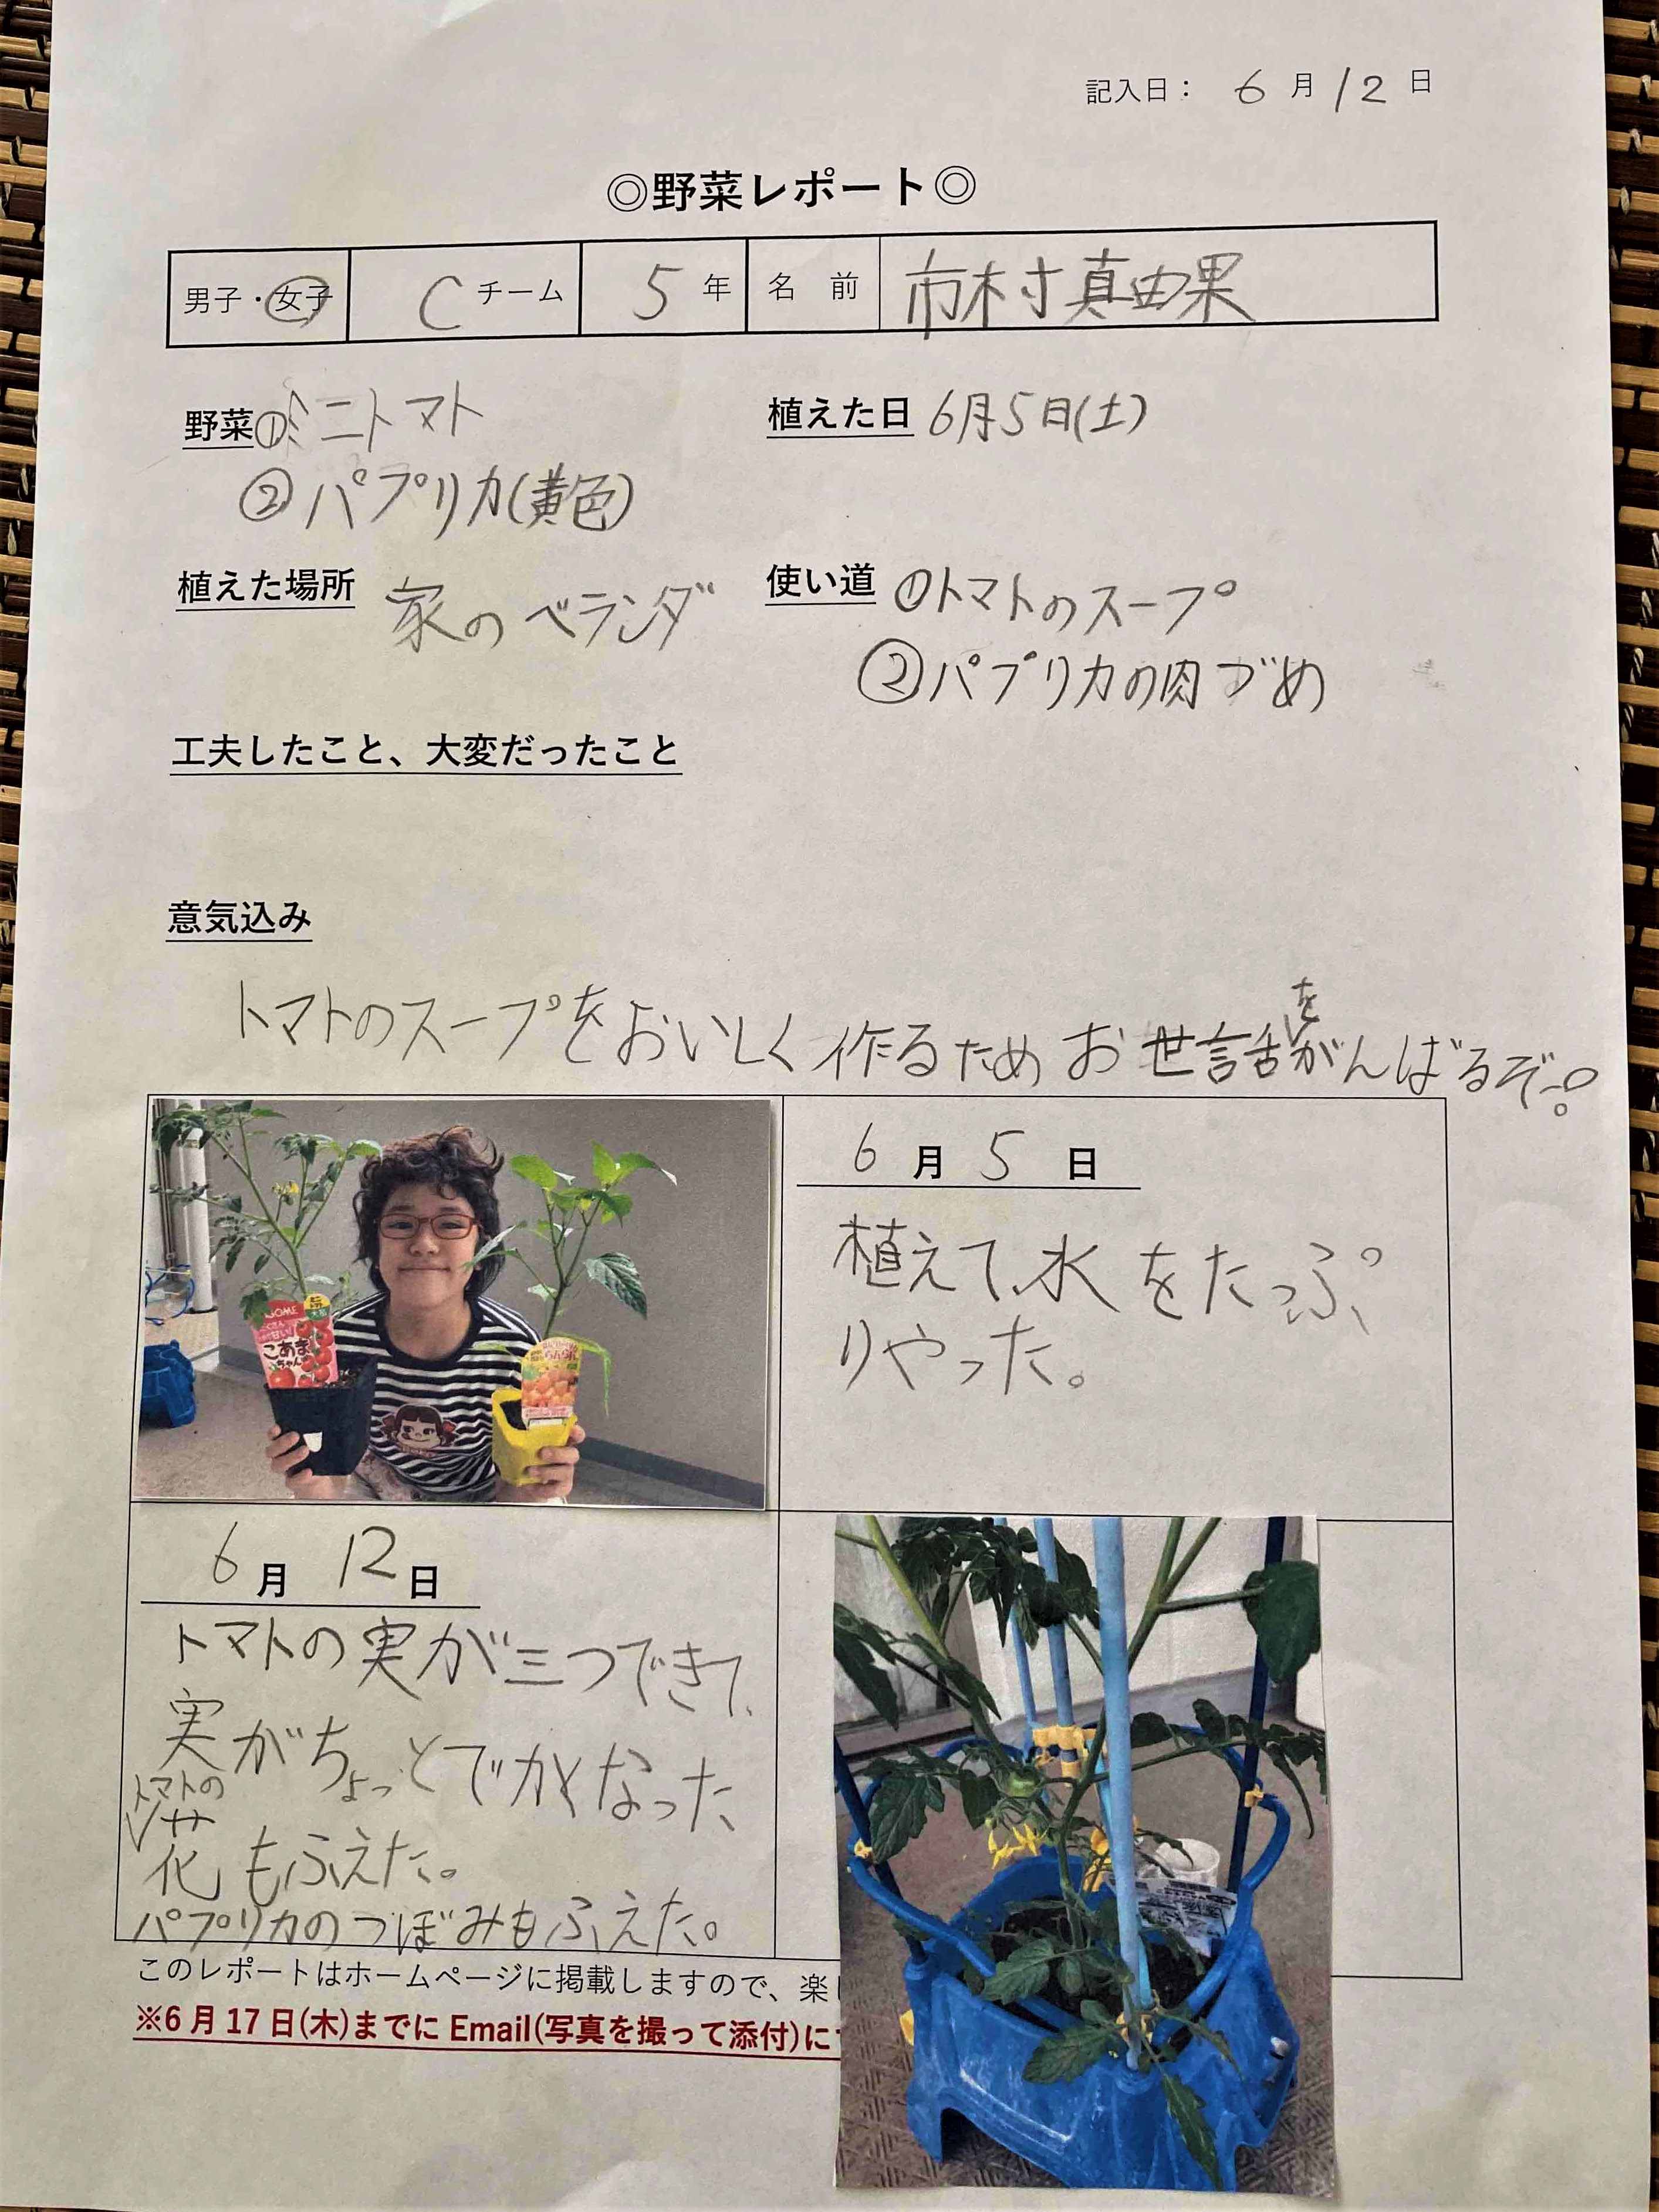 記入日： 6 月 12 日
◎野菜レポート◎
男子・女子 C チーム 5 年 名 前 市村真由果
野菜①ミニトマト
②パプリカ(黄色)
植えた日 6月5日(土)
植えた場所 家のベランダ
使い道 ①トマトのスープ
②パプリカの肉づめ
工夫したこと、大変だったこと
意気込み
トマトのスープをおいしく作るためお世話をがんばるぞー!
GOME
甘い!
こあま
ちゃん
6 月 5 日
植えて、水をたっぷ
りやった。
6 月 12 日
トマトの実が三つできて、
実がちょっとでかくなった、
トマトの
花もふえた。
パプリカのつぼみもふえた。
このレポートはホームページに掲載しますので、楽し
※6 月 17 日(木)までに Email(写真を撮って添付)に